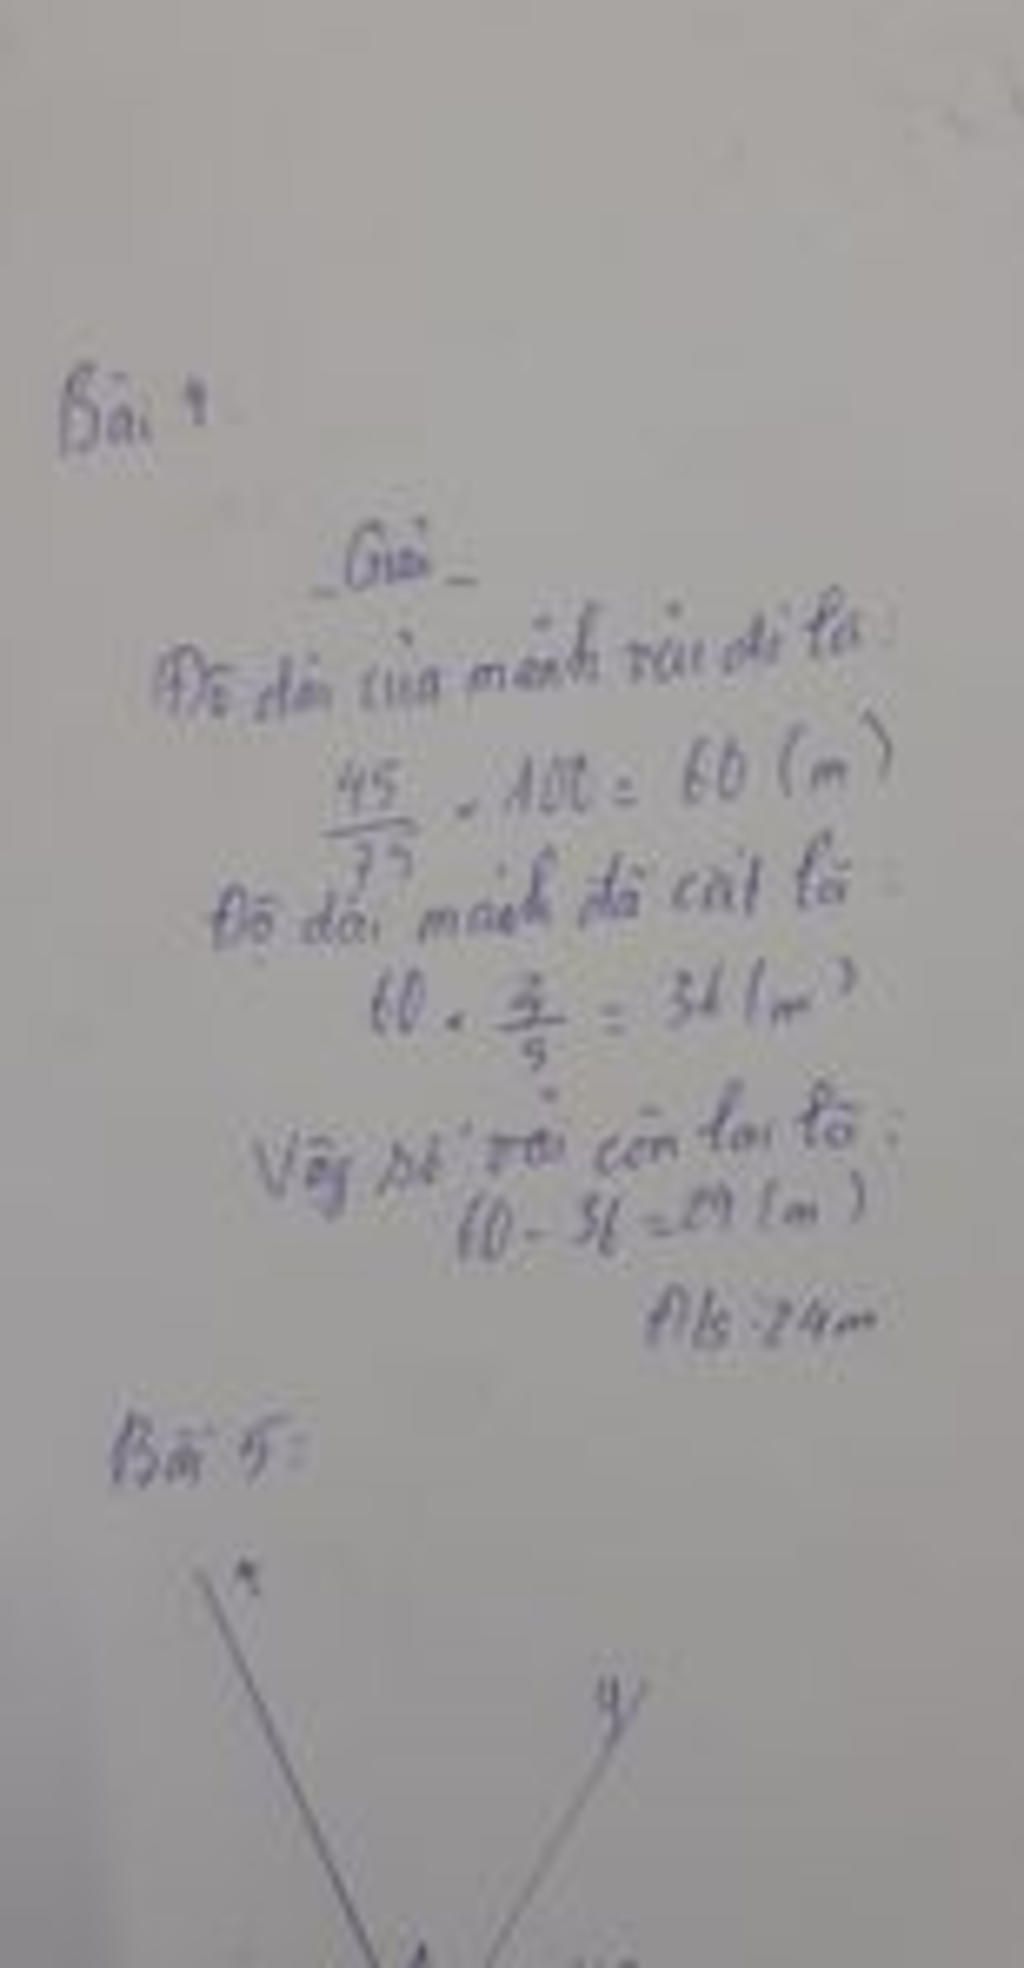 Bài 4
- Giải -
Độ dài của mảnh vải đó là:
45/75 . 100 = 60 (m)
Độ dài mảnh đã cắt là:
60 . 3/5 = 36 (m)
Vậy số vải còn lại là:
60 - 36 = 24 (m)
Đ/s: 24m
Bài 5:
x
y